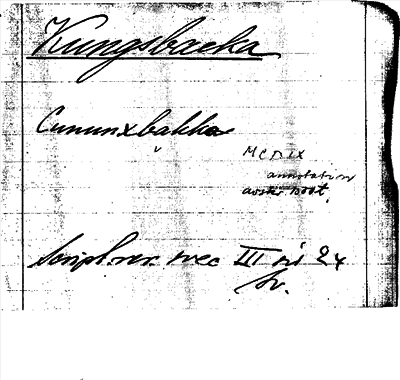 Kungsbacka
Cununxbakka
MCDIX
annotation
Script. rer. svec III nr 24